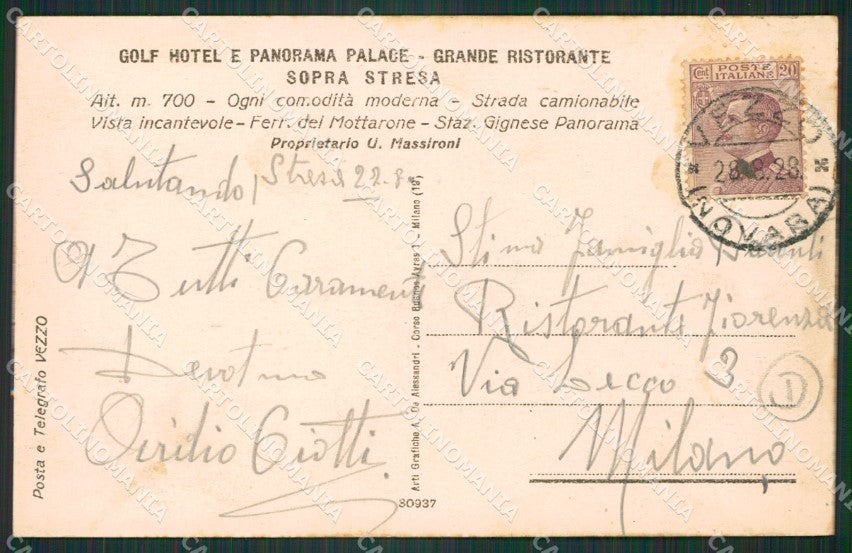 GOLF HOTEL E PANORAMA PALACE - GRANDE RISTORANTE
SOPRA STRESA
Alt. m. 700 - Ogni comodità moderna - Strada camionabile
Vista incantevole - Ferr. del Mottarone - Staz. Gignese Panorama
Proprietario U. Massironi
POSTE ITALIANE
Cent 20
VEZZO
28.8.28.
(NOVARA)
Salutando Stresa 22.8
A Tutti Caramente
Devotmo
Ciotti
Posta e Telegrafo VEZZO
Arti Grafiche A. De Alessandri - Corso Buenos Ayres 1 - Milano (19)
30937
Stima Famiglia
Ristorante Fiorenza
Via Lecco 3
Milano
1
CARTOLINOMANIA